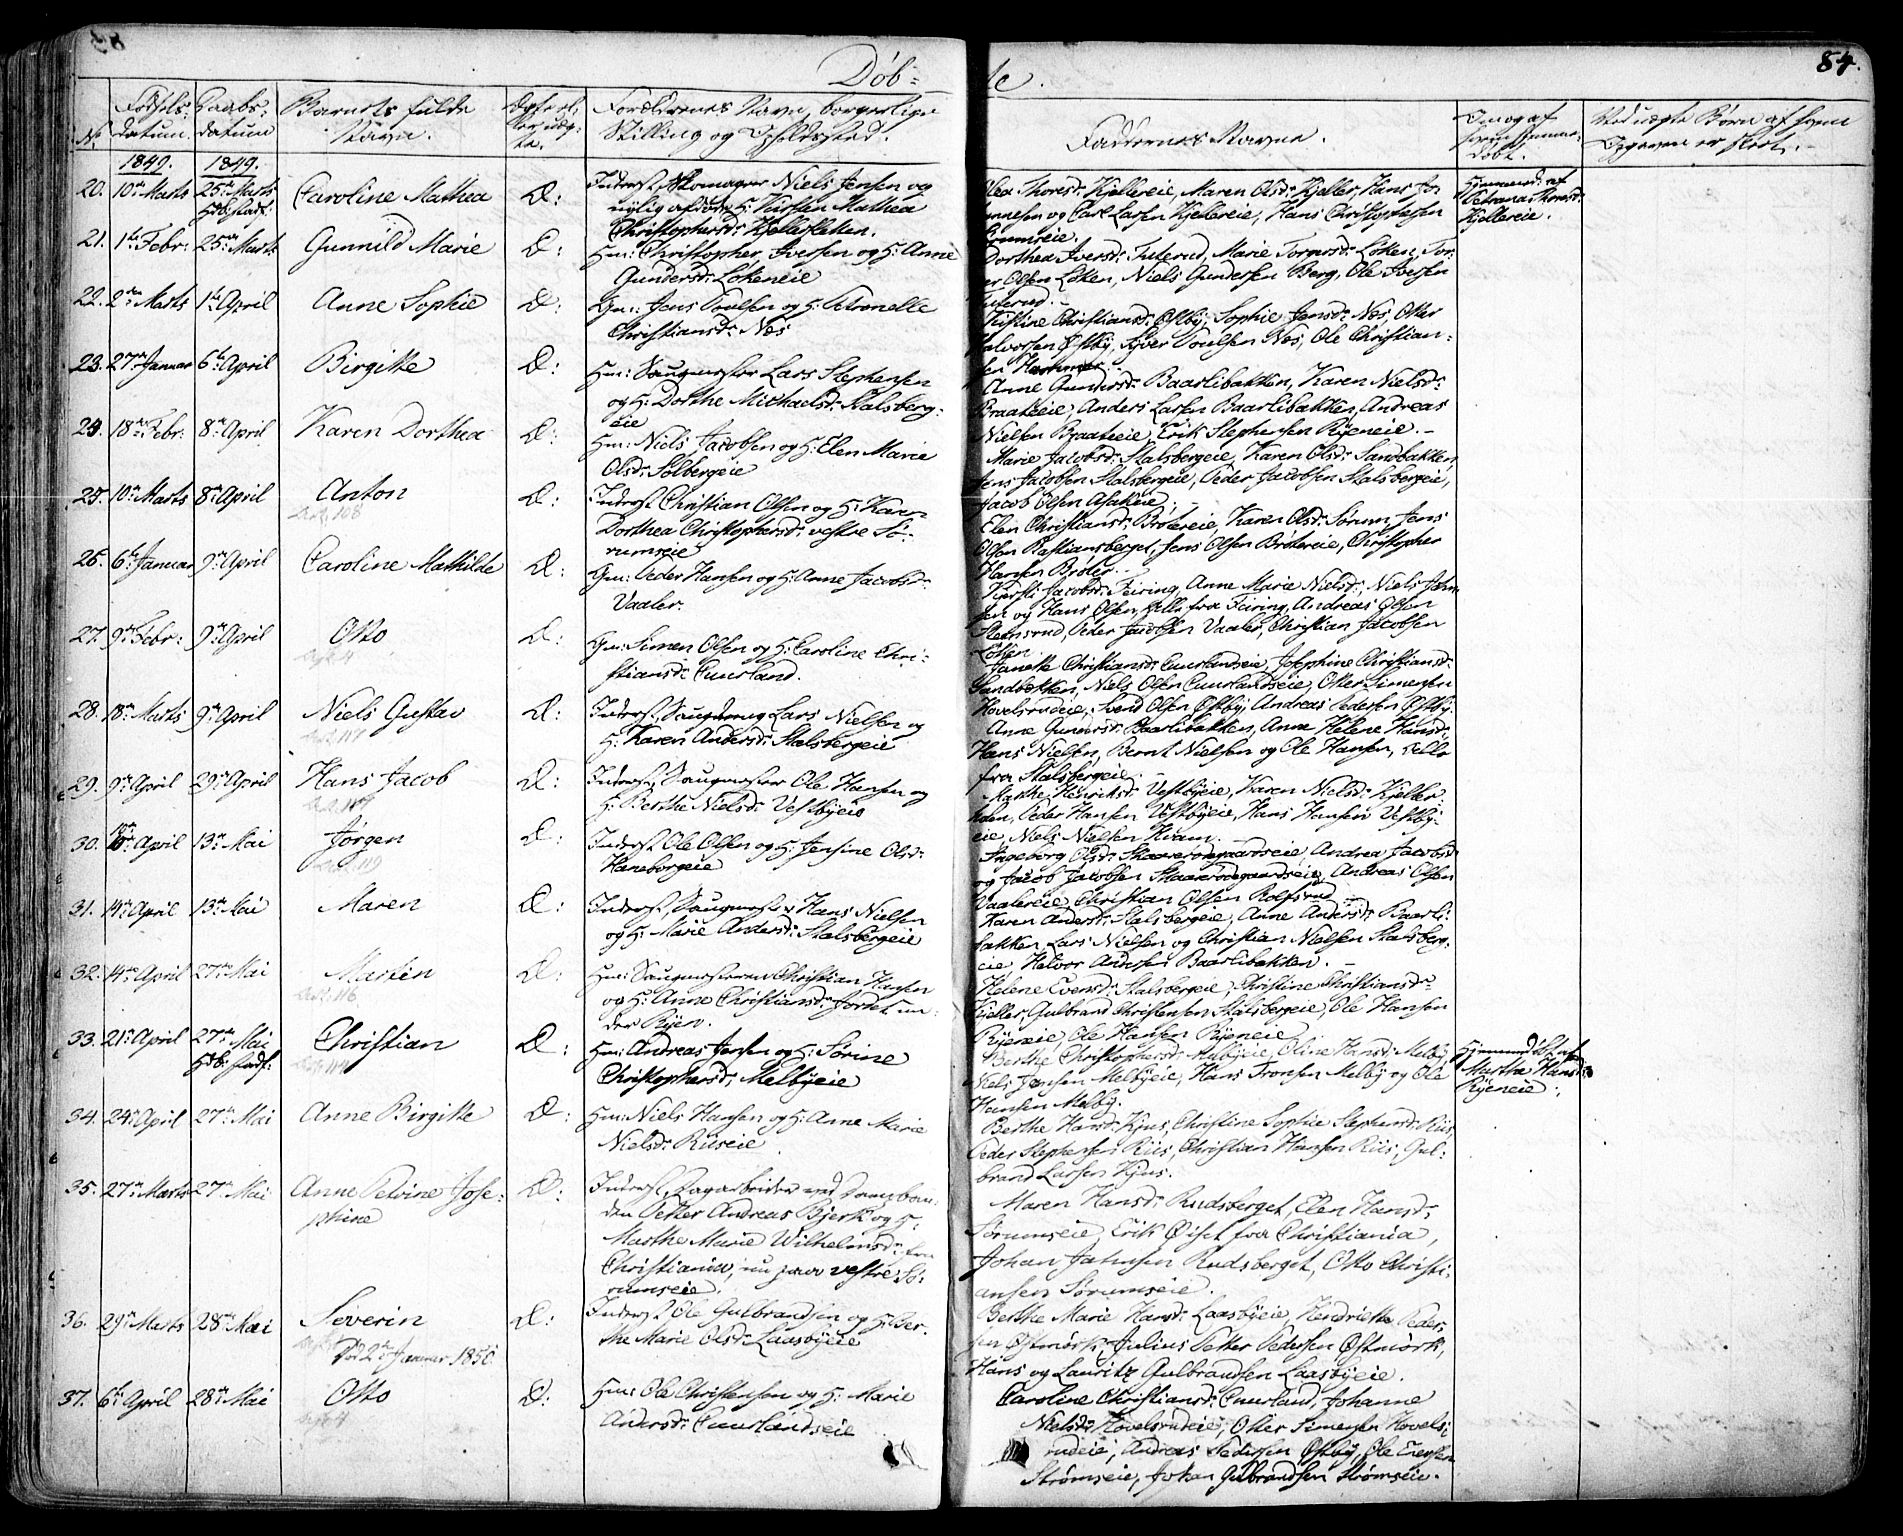 Døb-
te.
84.
No
Fødsels-
datum.
Daabs-
datum
Barnets fulde
Navn.
Forældrenes Navn, borgerlige
Stilling og Opholdssted.
Faddernes Navne.
Om og af
hvem hjemme-
døbt.
Ved uægte Børn af hvem
Opgaven er skeet.
1849. 1849.
20. 10de Marts 25de Marts Caroline Mathea Æ:
Inderst, Skomager Niels Jensen og
nylig afdøde H: Kirsten Mathea
Christophersd: Kjellersletten.
Olea Thoresd: Kjellereie, Maren Olsd: Kjeller, Hans Jo
hannesen og Carl Larsen Kjellereie, Hans Christophersen
Sørumseie.
Hjemmed: af
Petriana Thoresd:
Kjellereie.
21. 1ste Febr: 25de Marts Gunnild Marie Æ:
Hm: Christopher Iversen og H: Anne
Gundersd: Løkeneie
Dorthea Iversd: Tuterud, Marie Torgersd: Løken, Tor-
ger Olsen Løken, Niels Gundersen Berg, Ole Iversen
Tuterud.
22. 2den Marts 1ste April Anne Sophie Æ:
Gm: Jens Poulsen og H: Petronelle
Christiansd: Næs
Kistine Christiansd: Østby, Sophie Jensd: Næs, Otter
Halvorsen Østby, Syver Poulsen Næs, Ole Christian-
sen Hammer.
23. 27de Januar 6te April Birgitte Æ:
Hm: Saugmester Lars Stephensen
og H: Dorthe Michaelsd: Stalsberg-
eie
Anne Gundersd: Baarlibakken, Karen Nielsd:
Braateeie, Anders Larsen Baarlibakken, Andreas
Nielsen Braateeie, Erik Stephensen Ryeneie.
24. 18de Febr: 8de April Karen Dorthea Æ:
Hm: Niels Jacobsen og H: Elen Marie
Olsd: Solbergeie
Marie Jacobsd: Stalsbergeie, Karen Olsd: Sandbakken,
Jens Jacobsen Stalsbergeie, Peder Jacobsen Stalsbergeie,
Jacob Olsen Asakeie.
25. 10de Marts 8de April Anton Æ:
Inderst Christian Olsen og H: Karen
Dorthea Christophersd: vestre Sø-
rumseie
Elen Christiansd: Brøtereie, Karen Olsd: Sørum, Jens
Olsen Bastiansberget, Jens Olsen Brøtereie, Christopher
Hansen Brøter.
26. 6te Januar 9de April Caroline Mathilde Æ:
Gm: Peder Hansen og H: Anne Jacobsd:
Vaaler.
Kjersti Jacobsd: Feiring, Anne Marie Nielsd:, Niels Jen-
sen og Hans Olsen, alle fra Feiring, Andreas Olsen
Steinsrud, Peder Jacobsen Vaaler, Christian Jacobsen
Løken.
27. 9de Febr: 9de April Otto Æ:
Gm: Simen Olsen og H: Caroline Chri-
stiansd: Cuurland.
Janette Christiansd: Cuurlandseie, Josephine Christiansd:
Sandbækken, Niels Olsen Cuurlandseie, Otter Simensen
Hovelsrudeie, Svend Olsen Østby, Andreas Pedersen Østby.
28. 18de Marts 9de April Niels Gustav Æ:
Inderst, Saugdreng Lars Nielsen og
H: Karen Andersd: Stalsbergeie
Anne Gundersd: Baarlibakken, Anne Helene Hansd:
Hans Nielsen, Bernt Nielsen og Ole Hansen, alle
fra Stalsbergeie.
29. 9de April 29de April Hans Jacob Æ:
Inderst, Saugmester Ole Hansen og
H: Berthe Nielsd: Vestbyeie
Marthe Henriksd: Vestbyeie, Karen Nielsd: Kjeller-
holen, Peder Hansen Vestbyeie, Hans Hansen Vestby-
eie, Niels Nielsen Hvam.
30. 10de April 13de Mai Jørgen Æ:
Inderst Ole Olsen og H: Jensine Olsd:
Haneborgeie
Ingeborg Olsd: Skaarerødegaardseie, Andrea Jacobsd:
og Jacob Jacobsen Skaarerødegaardseie, Andreas Olsen
Vaalereie, Christian Olsen Rolfsrud.
31. 14de April 13de Mai Maren Æ:
Inderst, Saugmester Hans Nielsen
og H: Marie Andersd: Stalsbergeie
Karen Andersd: Stalsbergeie, Anne Andersd: Baarli-
bakken, Lars Nielsen og Christian Nielsen Stalsberg-
eie, Halvor Andersen Baarlibakken.
32. 14de April 27de Mai Martin Æ:
Hm: Saugmesteren Christian Hansen
og H: Anne Christiansd: Jordet un-
der Ryen.
Helene Evensd: Stalsbergeie, Christine Christiansd:
Kjeller, Gulbrand Christensen Stalsbergeie, Ole Hansen
Ryeneie, Ole Hansen Ryeneie
33. 21de April 27de Mai Christian Æ:
Hm: Andreas Jensen og H: Sørine
Christophersd: Melbyeie
Berthe Christophersd: Melbyeie, Oline Hansd: Melby,
Niels Jensen Melbyeie, Hans Tronsen Melby og Ole
Hansen Melby.
Hjemmedøbt af
Marthe Hansd:
Ryeneie.
34. 24de April 27de Mai Anne Birgitte Æ:
Hm: Niels Hansen og H: Anne Marie
Nielsd: Riiseie
Berthe Hansd: Kjus, Christine Sophie Stephensd: Riis,
Peder Stephensen Riis, Christian Hansen Riis, Gul-
brand Larsen Kjus.
35. 27de Marts 27de Mai Anne Petrine Jose-
phine Æ:
Inderst, Dagarbeider ved Jernban-
den Petter Andreas Bjerk og H:
Marthe Marie Wilhelmsd: fra
Christiania, nu paa vestre Sø-
rumseie.
Maren Hansd: Rudsberget, Elen Hansd:
Sørumseie, Erik Øiset fra Christiania,
Johan Jahnsen Rudsberget, Otto Christi-
ansen Sørumseie.
36. 29de Marts 28de Mai Severin Æ:
Død 2den Januar 1850.
Inderst Ole Gulbrandsen og H: Ber-
the Marie Olsd: Laasbyeie
Berthe Marie Hansd: Laasbyeie, Hendrikke Peder-
sen Østmørk, Julius Petter Pedersen Østmørk,
Hans og Lauritz Gulbrandsen Laasbyeie.
37. 6te April 28de Mai Otto Æ:
Hm: Ole Christensen og H: Marie
Andersd: Cuurlandseie
Caroline Christiansd: Cuurland, Johanne
Nielsd: Hovelsrudeie, Otter Simensen Hovels-
rudeie, Andreas Pedersen Østby, Ole Evensen
Strømseie, Johan Gulbrandsen Strømseie.